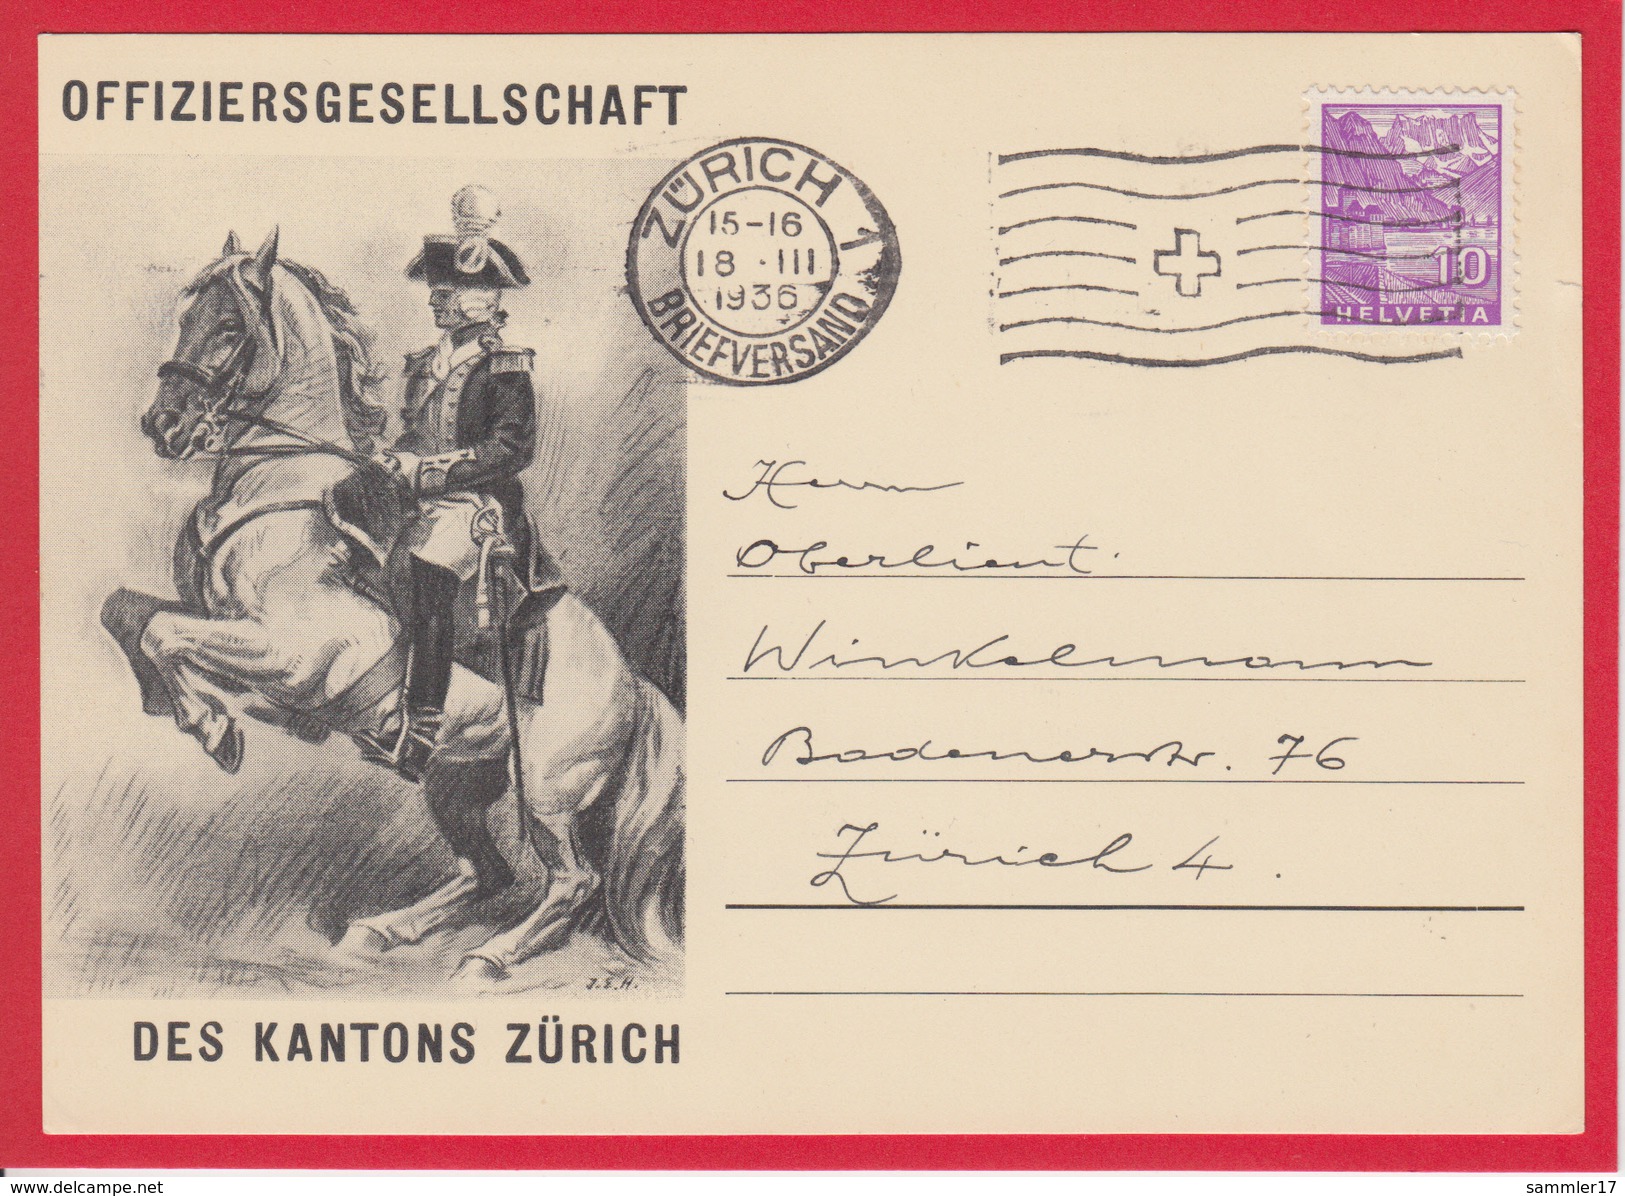 OFFIZIERSGESELLSCHAFT
ZÜRICH 1
15-16
18 · III
1936
BRIEFVERSAND
10
HELVETIA
Herrn
Oberlieut.
Winkelmann
Badenerstr. 76
Zürich 4.
J.E.H.
DES KANTONS ZÜRICH
www.delcampe.net
sammler17